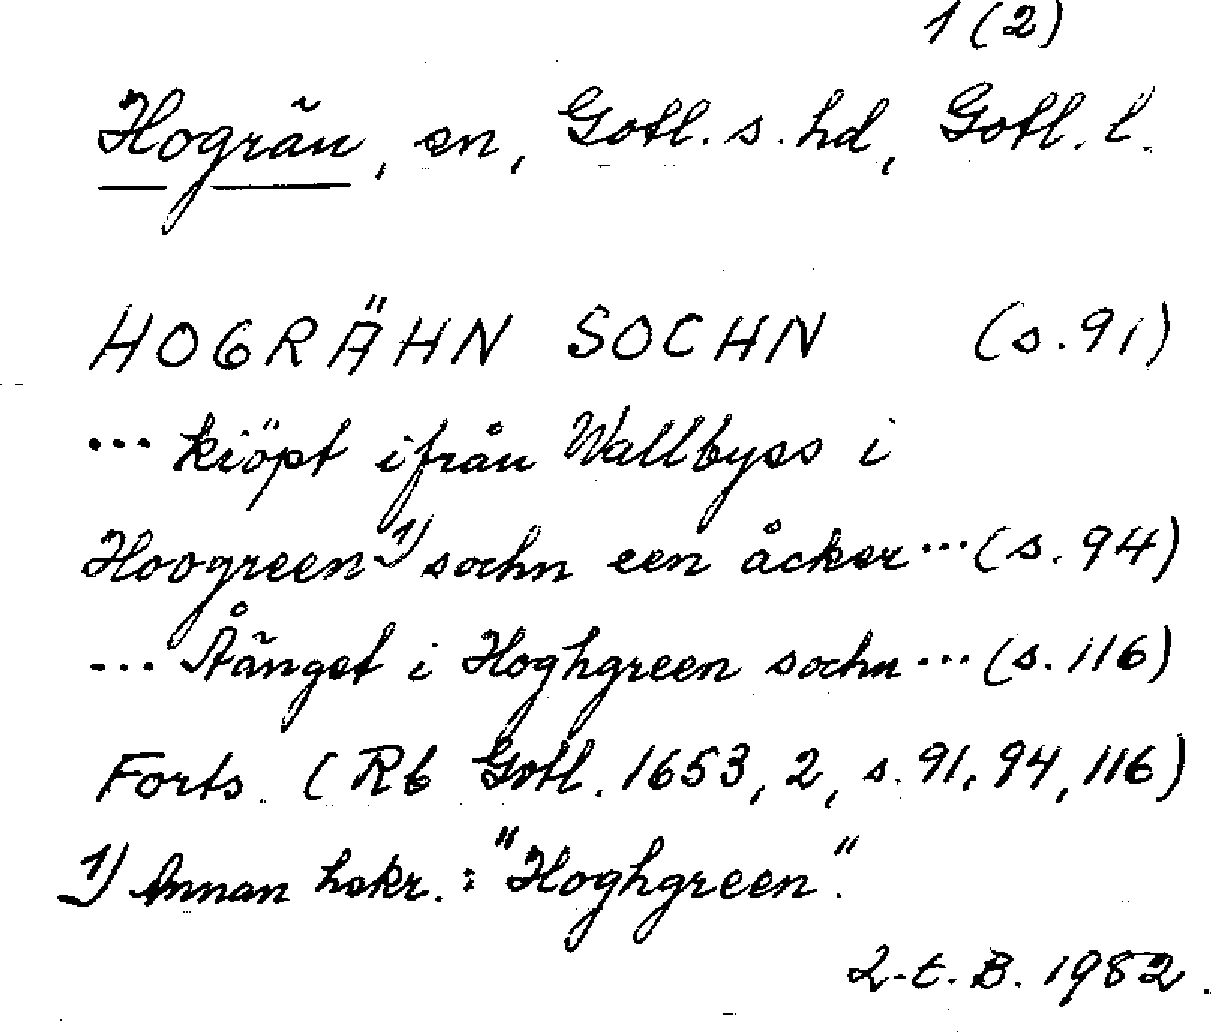 1 (2)
Hogrän, sn, Gotl. s. hd, Gotl. l.
HOGRÄHN SOCHN (s. 91)
... kiöpt ifrån Wallbyss i
Hoogreen 1) sochn een åcker ... (s. 94)
... Åänget i Hoghgreen sochn ... (s. 116)
Forts. (Rb Gotl. 1653, 2, s. 91, 94, 116)
1) Annan hskr.: "Hoghgreen".
L-E. B. 1982.